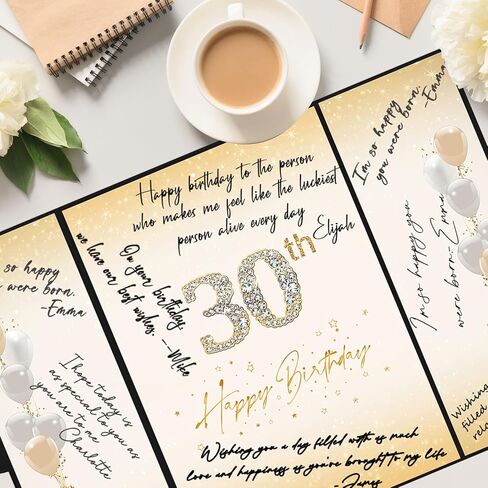 so happy
were born.
-Emma
I hope today is
as special to you as
you are to me
Charlotte
Happy birthday to the person
who makes me feel like the luckiest
person alive every day
Elijah
On your birthday,
we have our best wishes.
—Mike
30th
Happy Birthday
Wishing you a day filled with as much
love and happiness as you've brought to my life
-James
I'm so happy
you were born.
-Emma
I'm so happy you
were born-Emma
Wishing
filled